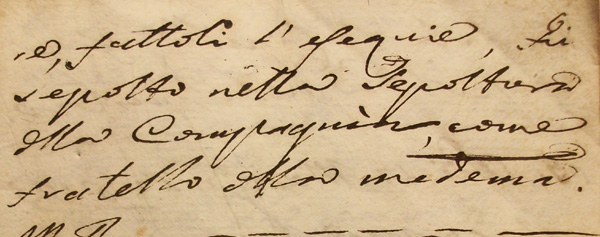 e, fattoli l'esequie, fu
sepolto nella sepoltura
della Compagnia, come
fratello della medema.